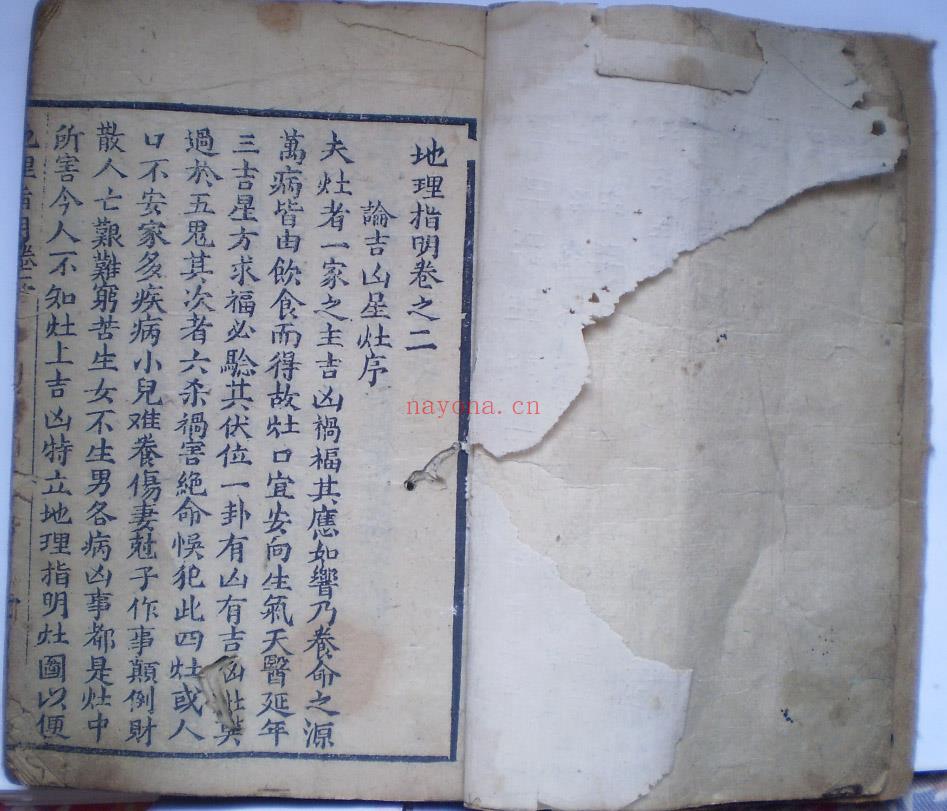 地理指明卷之二
論吉凶星灶序
夫灶者一家之主吉凶禍福其應如響乃養命之源
萬病皆由飲食而得故灶口宜安向生氣天醫延年
三吉星方求福必驗其伏位一卦有凶有吉凶灶莫
過於五鬼其次者六杀禍害絶命悞犯此四灶或人
口不安家多疾病小兒难養傷妻尅子作事顛倒財
散人亡艱難窮苦生女不生男各病凶事都是灶中
所害今人不知灶上吉凶特立地理指明灶圖以便
地理指明卷二
nayona.cn